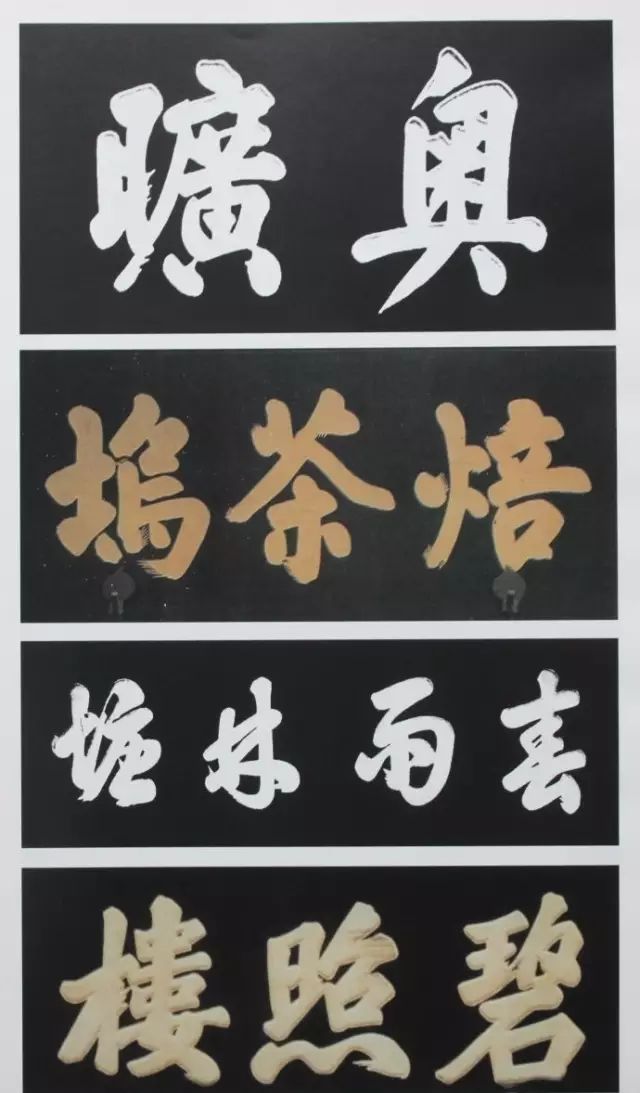 奧曠
焙茶塢
春雨林塘
碧照樓